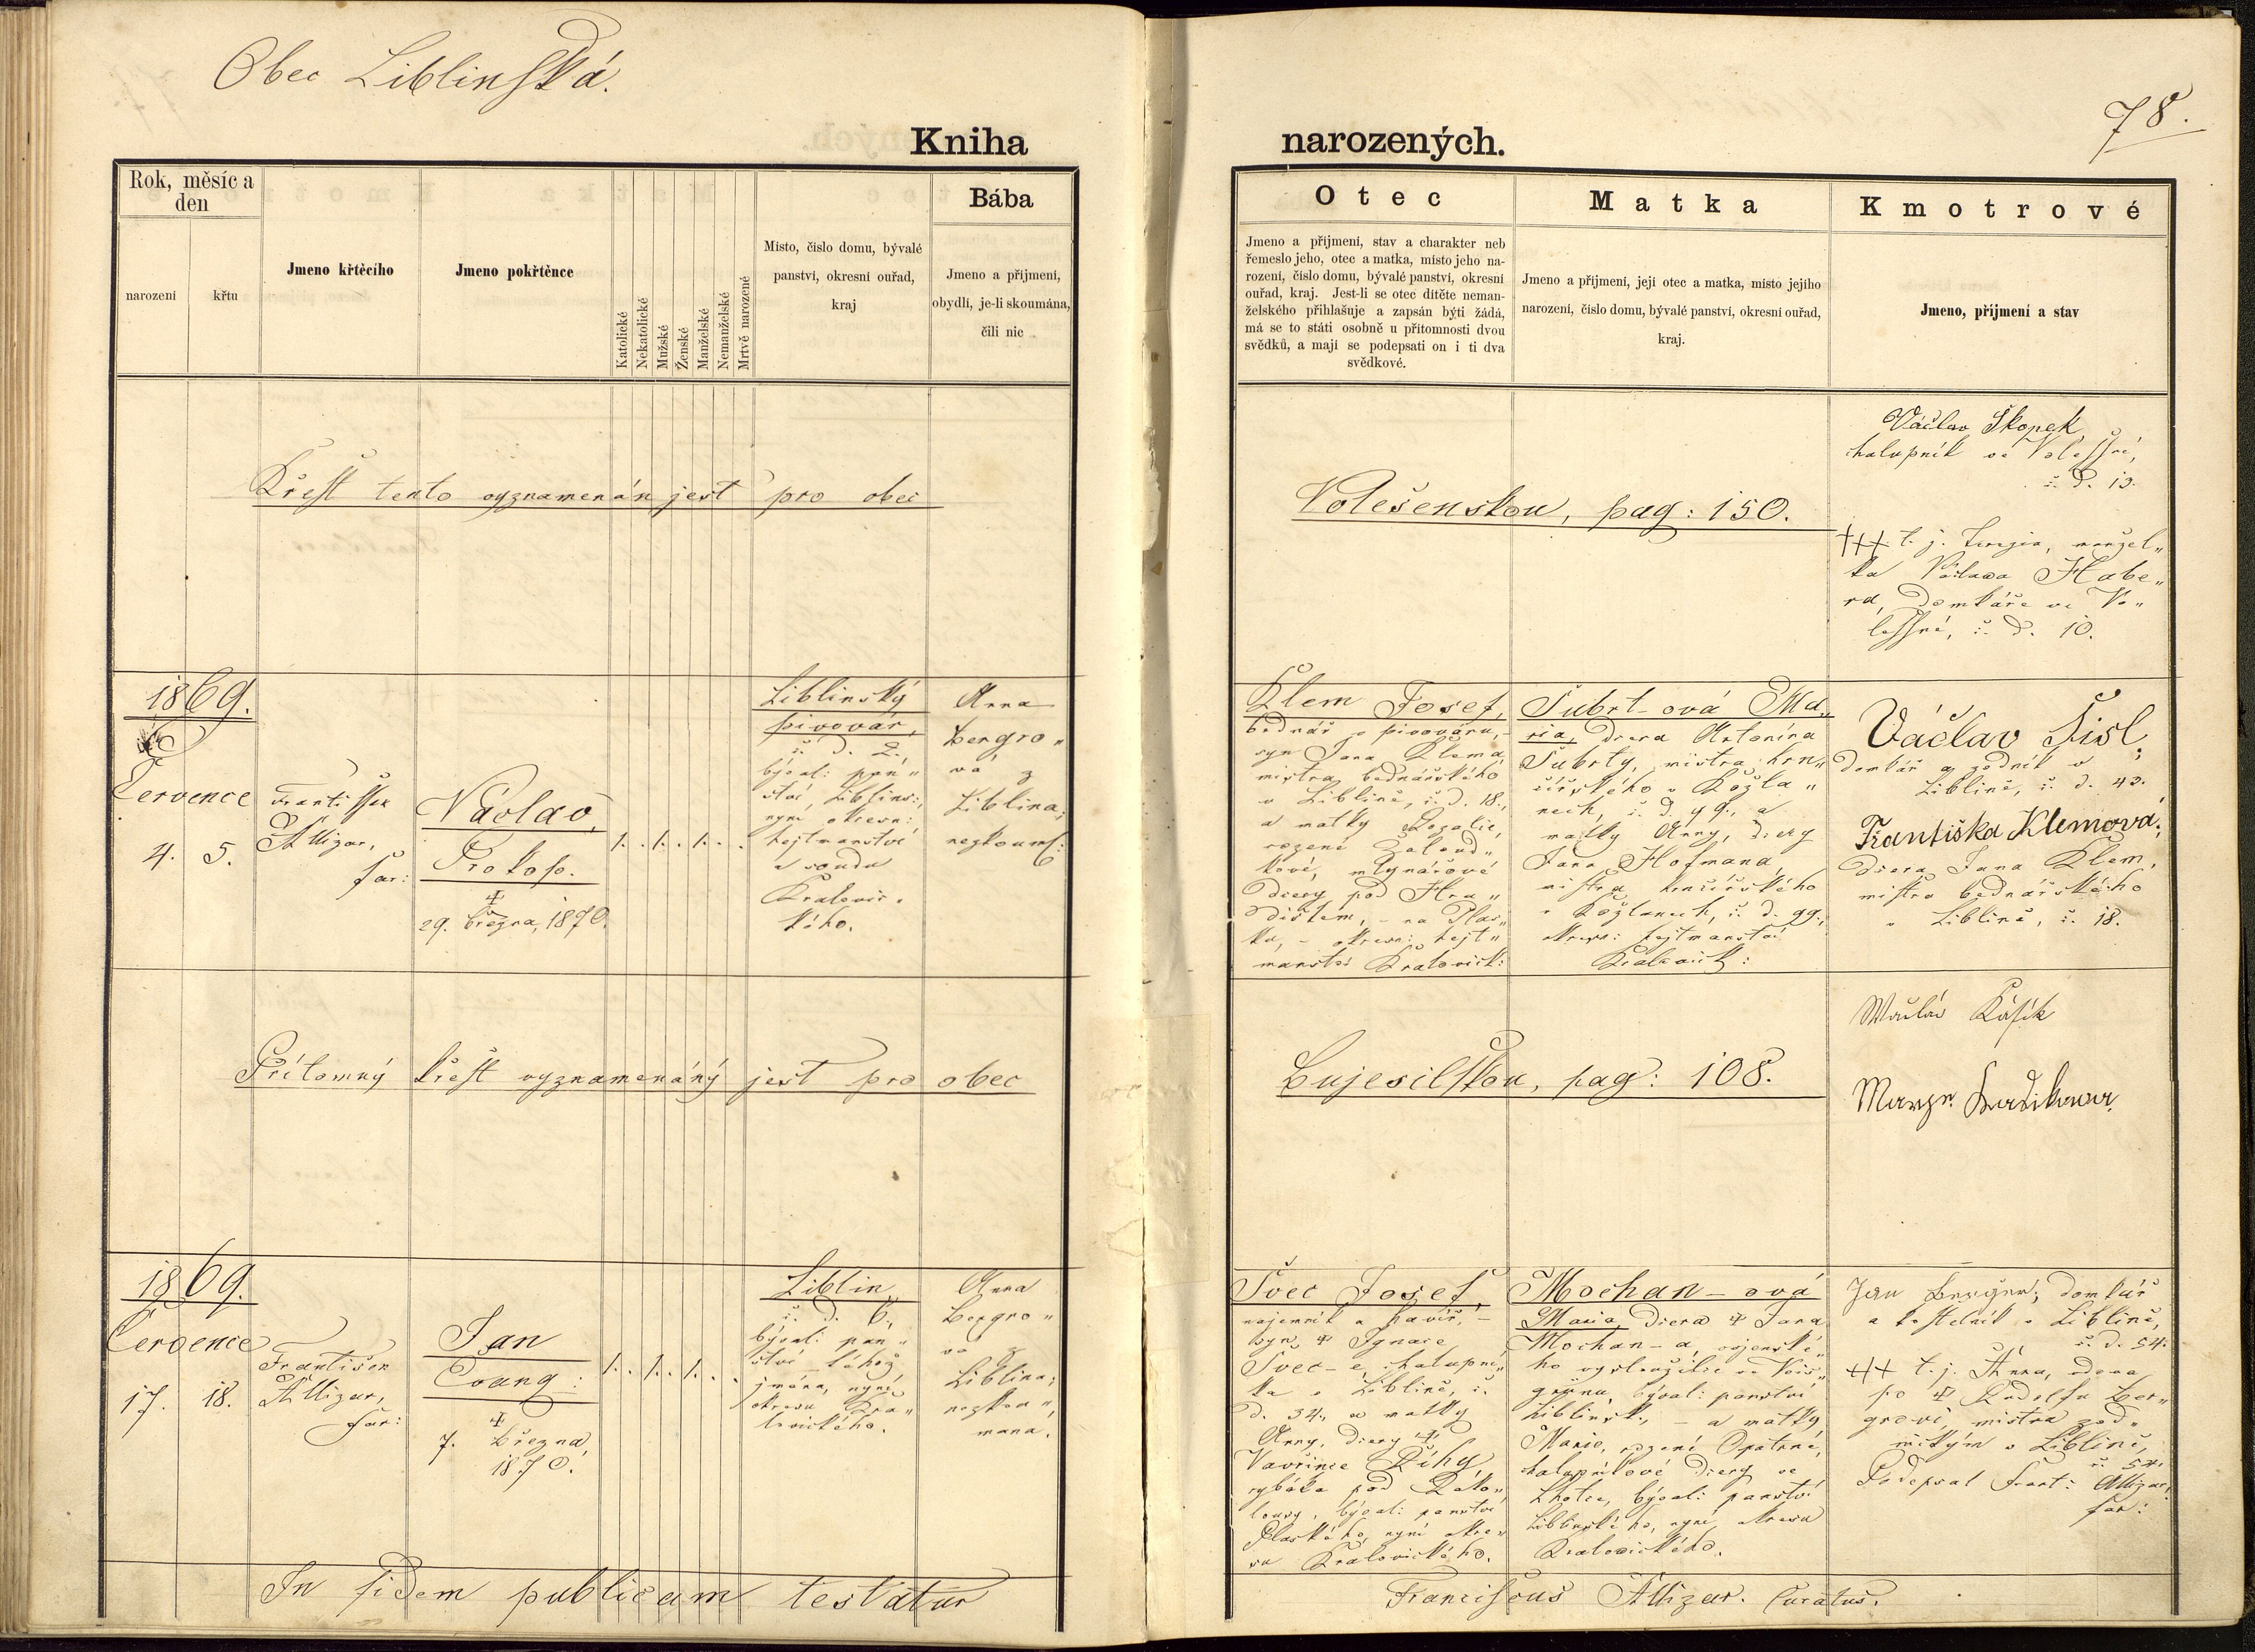 Obec Liblinská.
78.
Kniha narozených.
Rok, měsíc a
den
narození
křtu
Jmeno křtěcího
Jmeno pokřtěnce
Katolické
Nekatolické
Mužské
Ženské
Manželské
Nemanželské
Mrtvě narozené
Místo, číslo domu, bývalé
panství, okresní ouřad,
kraj
Bába
Jmeno a příjmení,
obydlí, je-li skoumána,
čili nic
Otec
Jmeno a příjmení, stav a charakter neb
řemeslo jeho, otec a matka, místo jeho na-
rození, číslo domu, bývalé panství, okresní
ouřad, kraj. Jest-li se otec dítěte neman-
želského přihlašuje a zapsán býti žádá,
má se to státi osobně u přítomnosti dvou
svědků, a mají se podepsati on i ti dva
svědkové.
Matka
Jmeno a příjmení, její otec a matka, místo jejího
narození, číslo domu, bývalé panství, okresní ouřad,
kraj.
Kmotrové
Jmeno, příjmení a stav
Křest tento vyznamenán jest pro obec
Volešenskou, pag: 150.
Václav Škopek
chalupník ve Volessné,
č. d. 13.
+++ t. j. Terezia, manžel„
ka Václava Habe„
ra, domkáře ve Vo„
lessné, č. d. 10.
1869.
Července
4. 5.
František
Allizar,
far:
Václav,
Prokop.
29. března, 1870.
1. . 1. . 1. . .
Liblinský
pivovár,
č. d. 2,
býval: pan„
ství, Liblins:,
nyní okresn:
hejtmanství
a soudu
Kralovic„
kého.
Anna
Bergro„
vá z
Liblina;
nezkoum:
Klem Josef,
bednář v pivováru,
syn Jana Klema,
mistra bednářského
v Liblině, č. d. 18.,
a matky Rozalie,
rozené Žaloud„
kové, mlynářové
dcery pod Hra„
dištem, - na Plas„
ku, - okresn: hejt„
manství Kralovick:
Šubrt-ová Ma„
ria, dcera Antonína
Šubrty, mistra hrn„
čířského v Kožla„
nech, č. d. 99., a
matky Anny, dcery
Jana Hofmana,
mistra hrnčířského
v Kožlanech, č. d. 99.,
okresn: hejtmanství
Kralovick:
Václav Šisl,
domkář a zedník v
Liblině, č. d. 43.
Františka Klemová,
dcera Jana Klem,
mistra bednářského
v Liblině, č. 18.
Přítomný křest vyznamenáný jest pro obec
Bujesilskou, pag: 108.
1869.
Července
17. 18.
František
Allizar,
far:
Jan
Evang:
7. Března,
1870.
1. . 1. . 1. . .
Liblin,
č. d. 6,
býval: pan„
ství téhož
jména, nyní
okresu Kra„
lovického.
Anna
Bergro„
vá z
Liblina;
nezkou„
mana.
Švec Josef,
nájemník a havíř, -
syn + Ignace
Švec-e, chalupní„
ka v Liblině, č.
d. 34., a matky
Anny, dcery +
Vavřince Říhy,
rybáka pod Rako„
lousy, býval: panství
Plaského, nyní okre„
su Kralovického.
Mochan-ová
Maria, dcera + Jana
Mochan-a, vojenské„
ho vysloužilce ve Vois„
grünu, býval: panství
Liblinsk., - a matky
Marie, rozené Opatrné,
chalupníkové dcery ve
Lhotce, býval: panství
Liblinského, nyní okresu
Kralovického.
Jan domkář
a kostelník v Liblině,
č. d. 54.
+++ t. j. Anna, vdova
po + Rudolfu Ber„
grovi, mistra zed„
nickým v Liblině,
č. 54.
Podepsal Frant: Allizar,
far:
In fidem publicam testatur
Franciscus Allizar. Curatus.